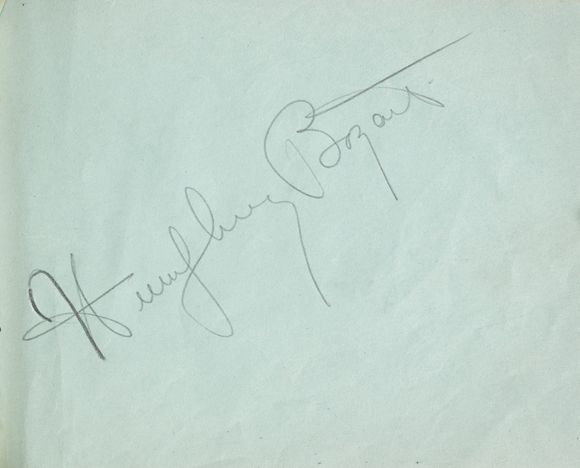 Humphrey Bogart